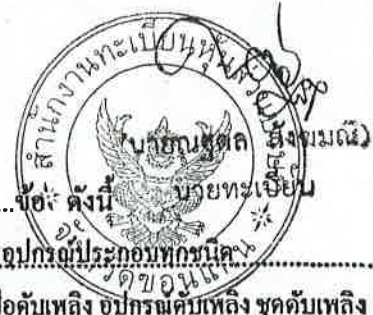 สำนักงานทะเบียนหุ้นส่วนบริษัท
จังหวัดขอนแก่น
(นายณฐตล สังฆมณี)
นายทะเบียน
ข้อ ดังนี้
อุปกรณ์ประกอบทุกชนิด
ดับเพลิง อุปกรณ์ดับเพลิง ชุดดับเพลิง